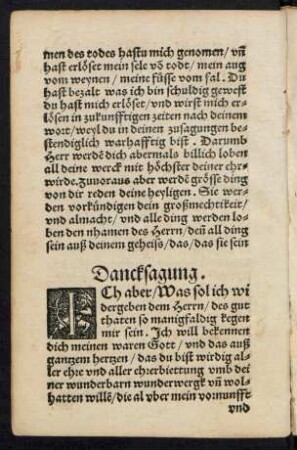 men des todes hastu mich genomen/ vñ
hast erlöset mein sele vō todt/ mein aug
vom weynen/ meine füsse vom fal. Du
hast bezalt was ich bin schuldig gewest
du hast mich erlöset/ vnd wirst mich er-
lösen in zukunfftigen zeiten nach deinem
wort/ weyl du in deinen zusagungen be-
stendiglich warhafftig bist. Darumb
Herr werdē dich abermals billich loben
all deine werck mit höchster deiner ehr-
wirde. Zuuoraus aber werdē grösse ding
von dir reden deine heyligen. Sie wer-
den vorkündigen dein großmechtikeit/
vnd almacht/ vnd alle ding werden lo-
ben den nhamen des Herrn/ deñ all ding
sein auß deinem geheiss/ das/ das sie sein
Dancksagung.
ICh aber/ Was sol ich wi
dergeben dem Herrn/ des gut
thaten so manigfaldig kegen
mir sein. Ich will bekennen
dich meinen waren Gott/ vnd das auß
gantzem hertzen/ das du bist wirdig al-
ler ehre vnd aller ehrerbiettung vmb dei
ner wunderbarn wunderwergk vñ wol-
hatten willē/ die al vber mein vornunfft
vnd